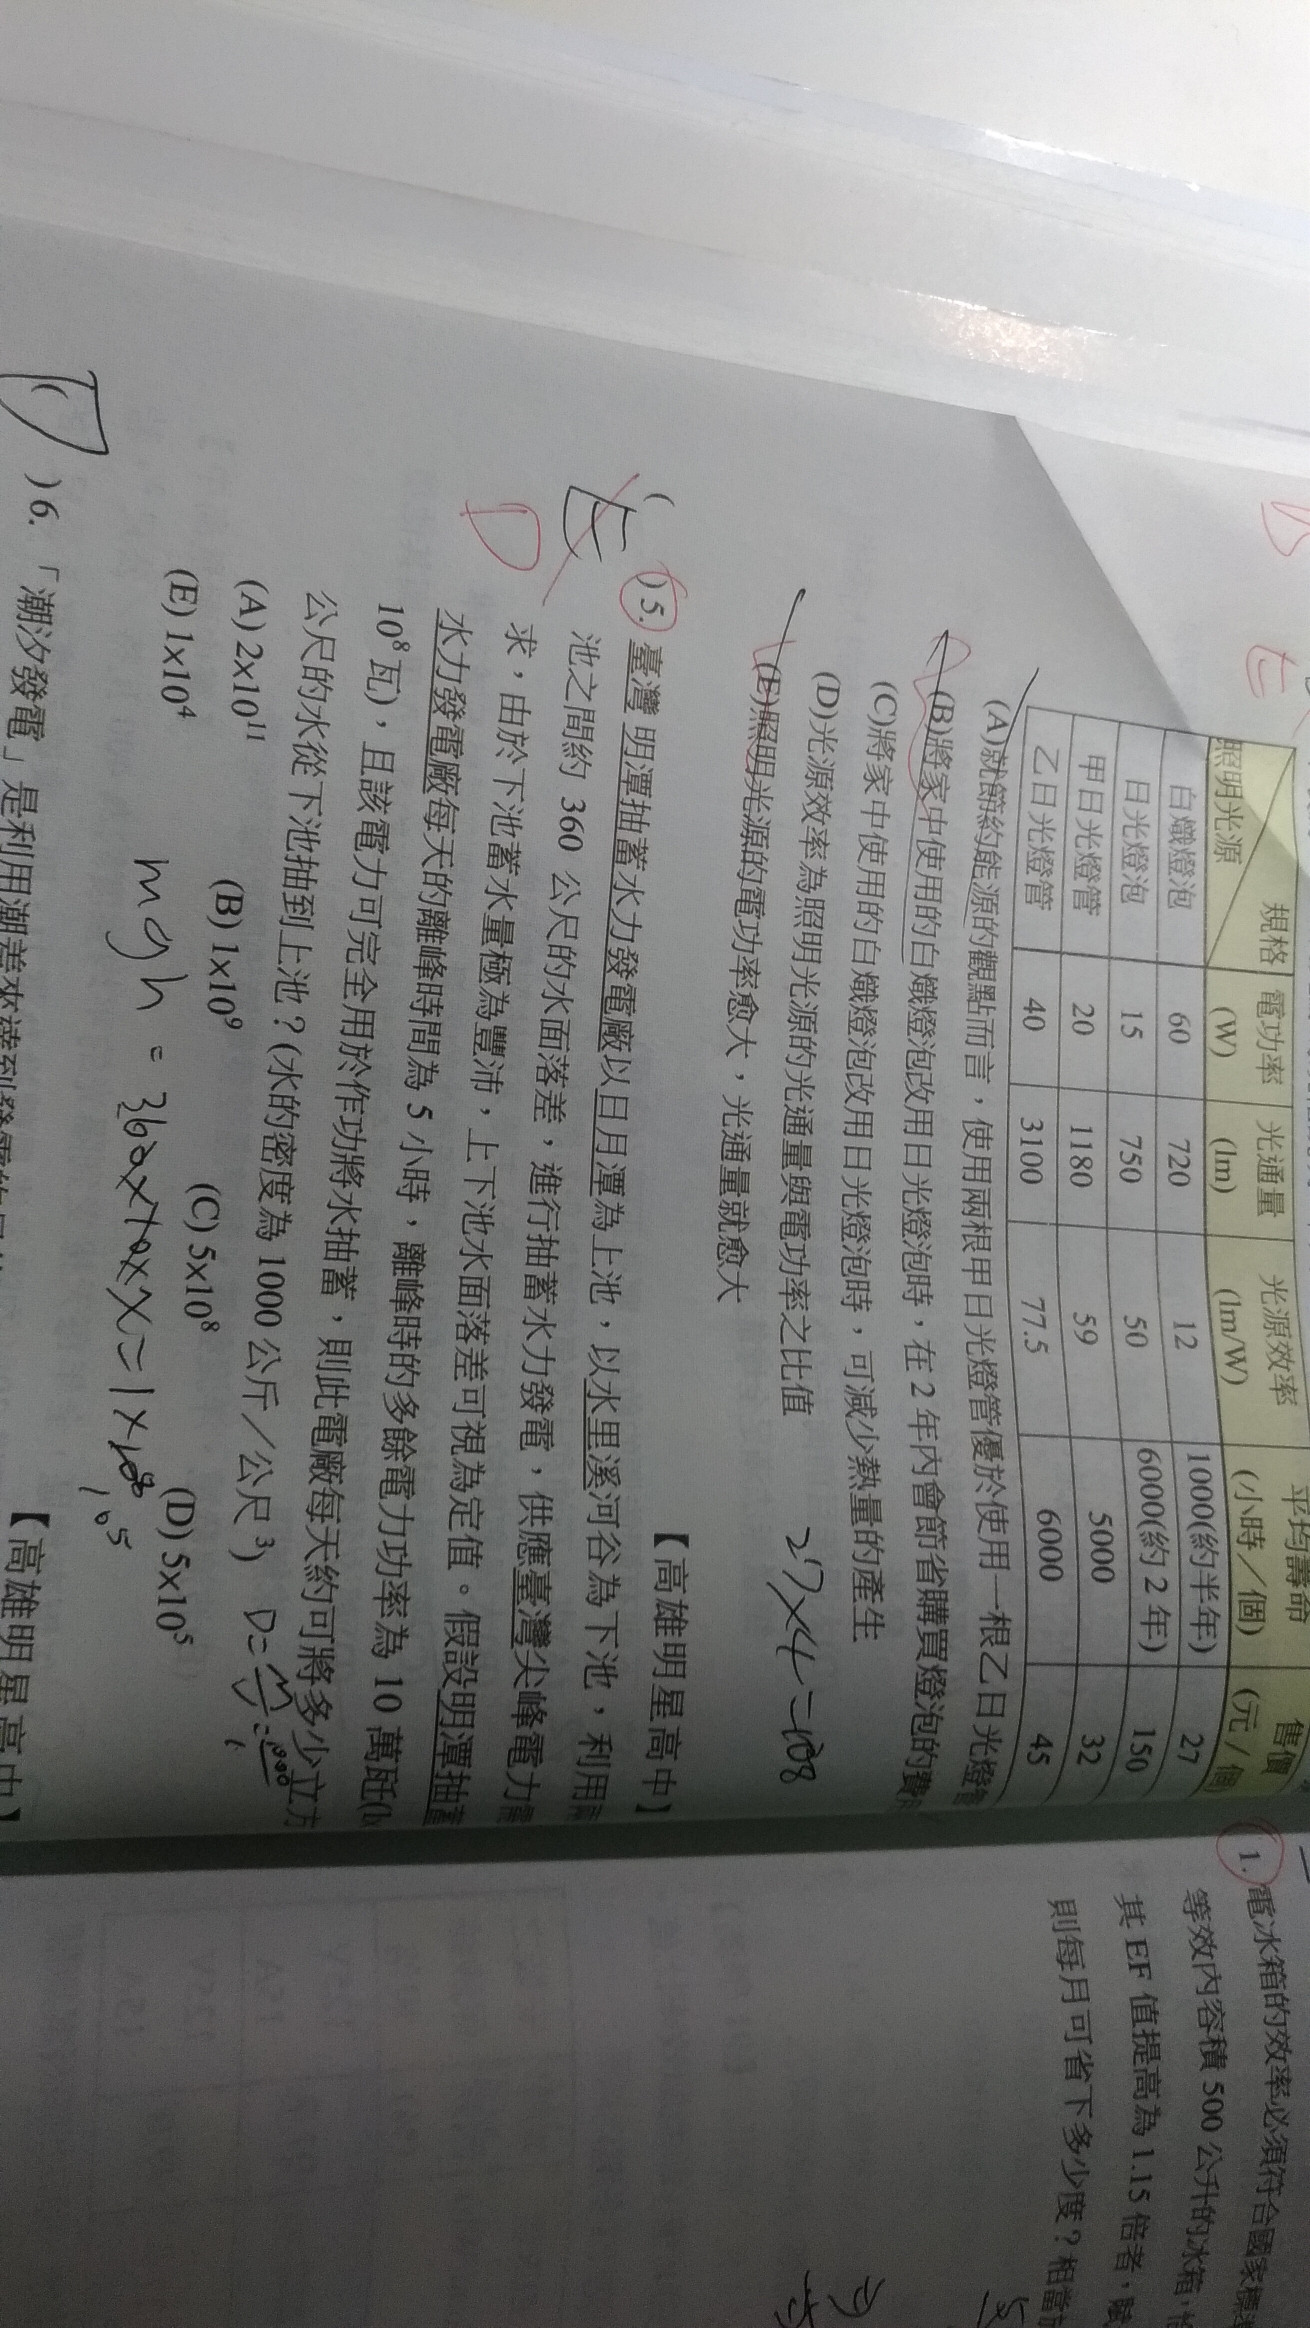 規格
照明光源
電功率
(W)
光通量
(lm)
光源效率
(lm/W)
平均壽命
(小時／個)
售價
(元／個)
白熾燈泡 60 720 12 1000(約半年) 27
日光燈泡 15 750 50 6000(約 2 年) 150
甲日光燈管 20 1180 59 5000 32
乙日光燈管 40 3100 77.5 6000 45
(A)就節約能源的觀點而言，使用兩根甲日光燈管優於使用一根乙日光燈管
(B)將家中使用的白熾燈泡改用日光燈泡時，在 2 年內會節省購買燈泡的費
(C)將家中使用的白熾燈泡改用日光燈泡時，可減少熱量的產生
(D)光源效率為照明光源的光通量與電功率之比值
(E)照明光源的電功率愈大，光通量就愈大
27×4=108
【高雄明星高中】
E
D
( )5. 臺灣明潭抽蓄水力發電廠以日月潭為上池，以水里溪河谷為下池，利用兩
池之間約 360 公尺的水面落差，進行抽蓄水力發電，供應臺灣尖峰電力需
求，由於下池蓄水量極為豐沛，上下池水面落差可視為定值。假設明潭抽蓄
水力發電廠每天的離峰時間為 5 小時，離峰時的多餘電力功率為 10 萬瓩(
10⁸ 瓦)，且該電力可完全用於作功將水抽蓄，則此電廠每天約可將多少立方
公尺的水從下池抽到上池？(水的密度為 1000 公斤／公尺³)
(A) 2×10¹¹ (B) 1×10⁹ (C) 5×10⁸ (D) 5×10⁵
(E) 1×10⁴
mgh = 360×10×X=1×10⁸
10⁵
( )6. 「潮汐發電」是利用潮差來達到發電的
【高雄明星高中】
1. 電冰箱的效率必須符合國家標準
等效內容積 500 公升的冰箱，
其 EF 值提高為 1.15 倍者，
則每月可省下多少度？相當